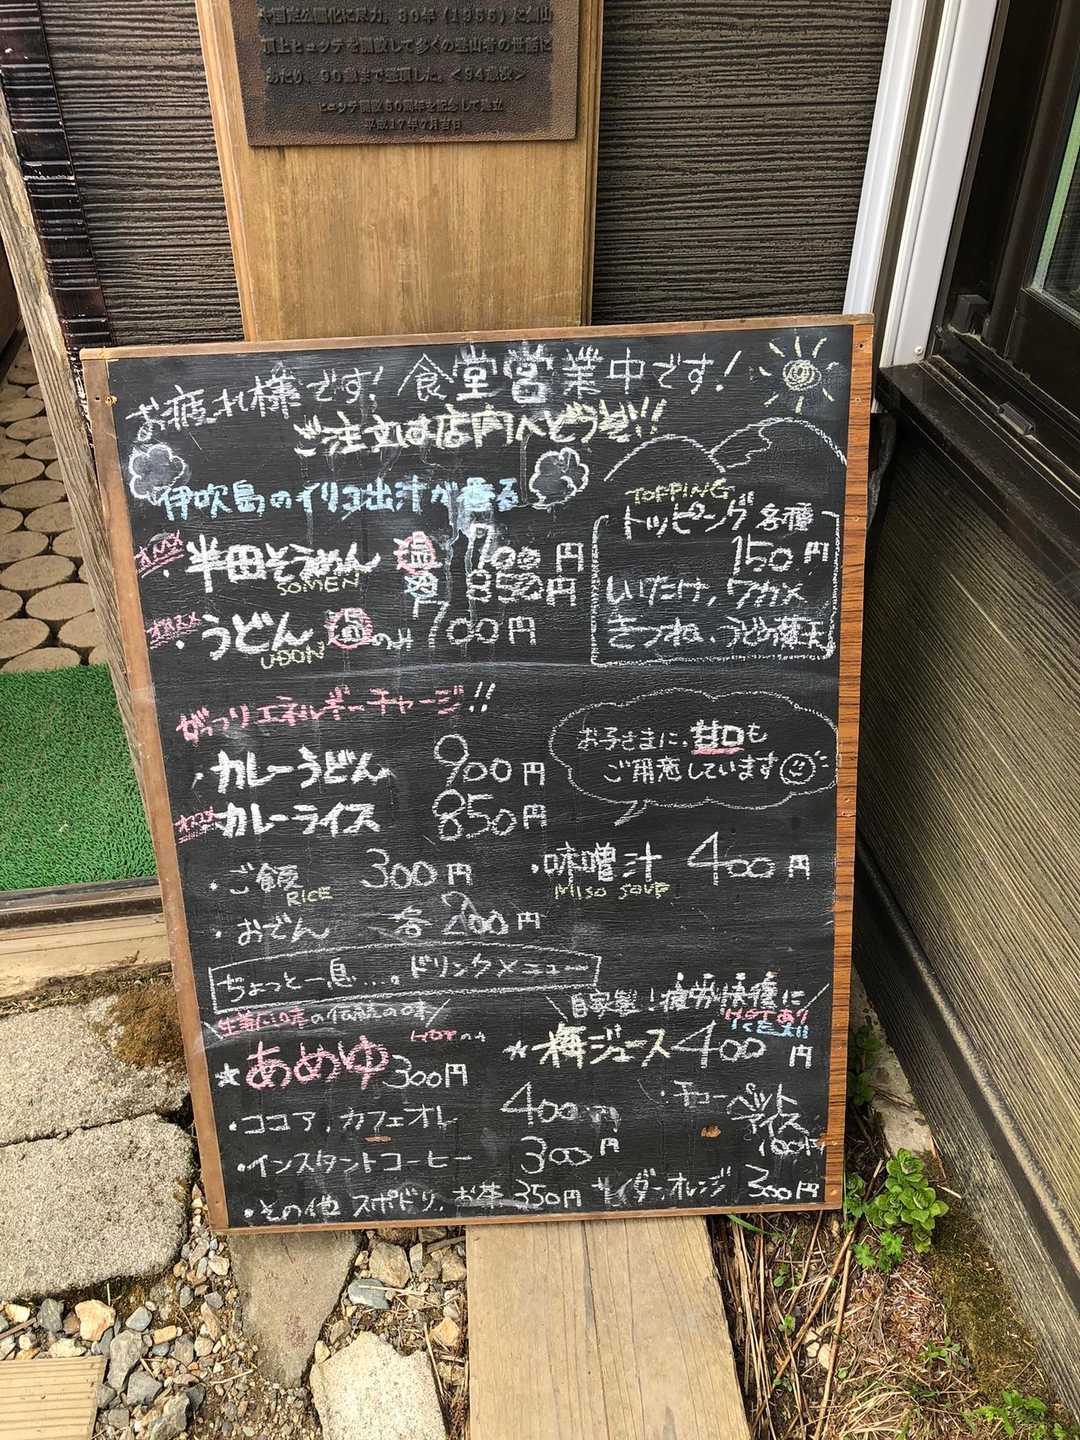 や国定公園化に尽力。30年(1955)に剣山
頂上ヒュッテを開設して多くの登山者の世話に
あたり、90歳まで登頂した。<94歳没>
ヒュッテ開設50周年を記念して建立
平成17年7月吉日
お疲れ様です! 食堂営業中です!
ご注文は店内へどうぞ!!
伊吹島のイリコ出汁が香る
オススメ
・半田そうめん 温 700円
SOMEN 冷 850円
オススメ
・うどん 温のみ 700円
UDON
TOPPING
トッピング各種
150円
しいたけ, ワカメ
きつね、うどの葉天
がっつりエネルギーチャージ!!
・カレーうどん 900円
オススメ
・カレーライス 850円
お子さまに、甘口も
ご用意しています
・ご飯 300円
RICE
・味噌汁 400円
MISO SOUP
・おでん 各200円
ちょっと一息....。ドリンクメニュー
の伝統の味
HOTのみ
★あめゆ 300円
自家製!疲労快復に
HOTあり
★梅ジュース 400円
・ココア, カフェオレ 400円
・インスタントコーヒー 300円
・チューペットアイス
100円
・その他 スポドリ, お茶 350円 サイダー, オレンジ 300円